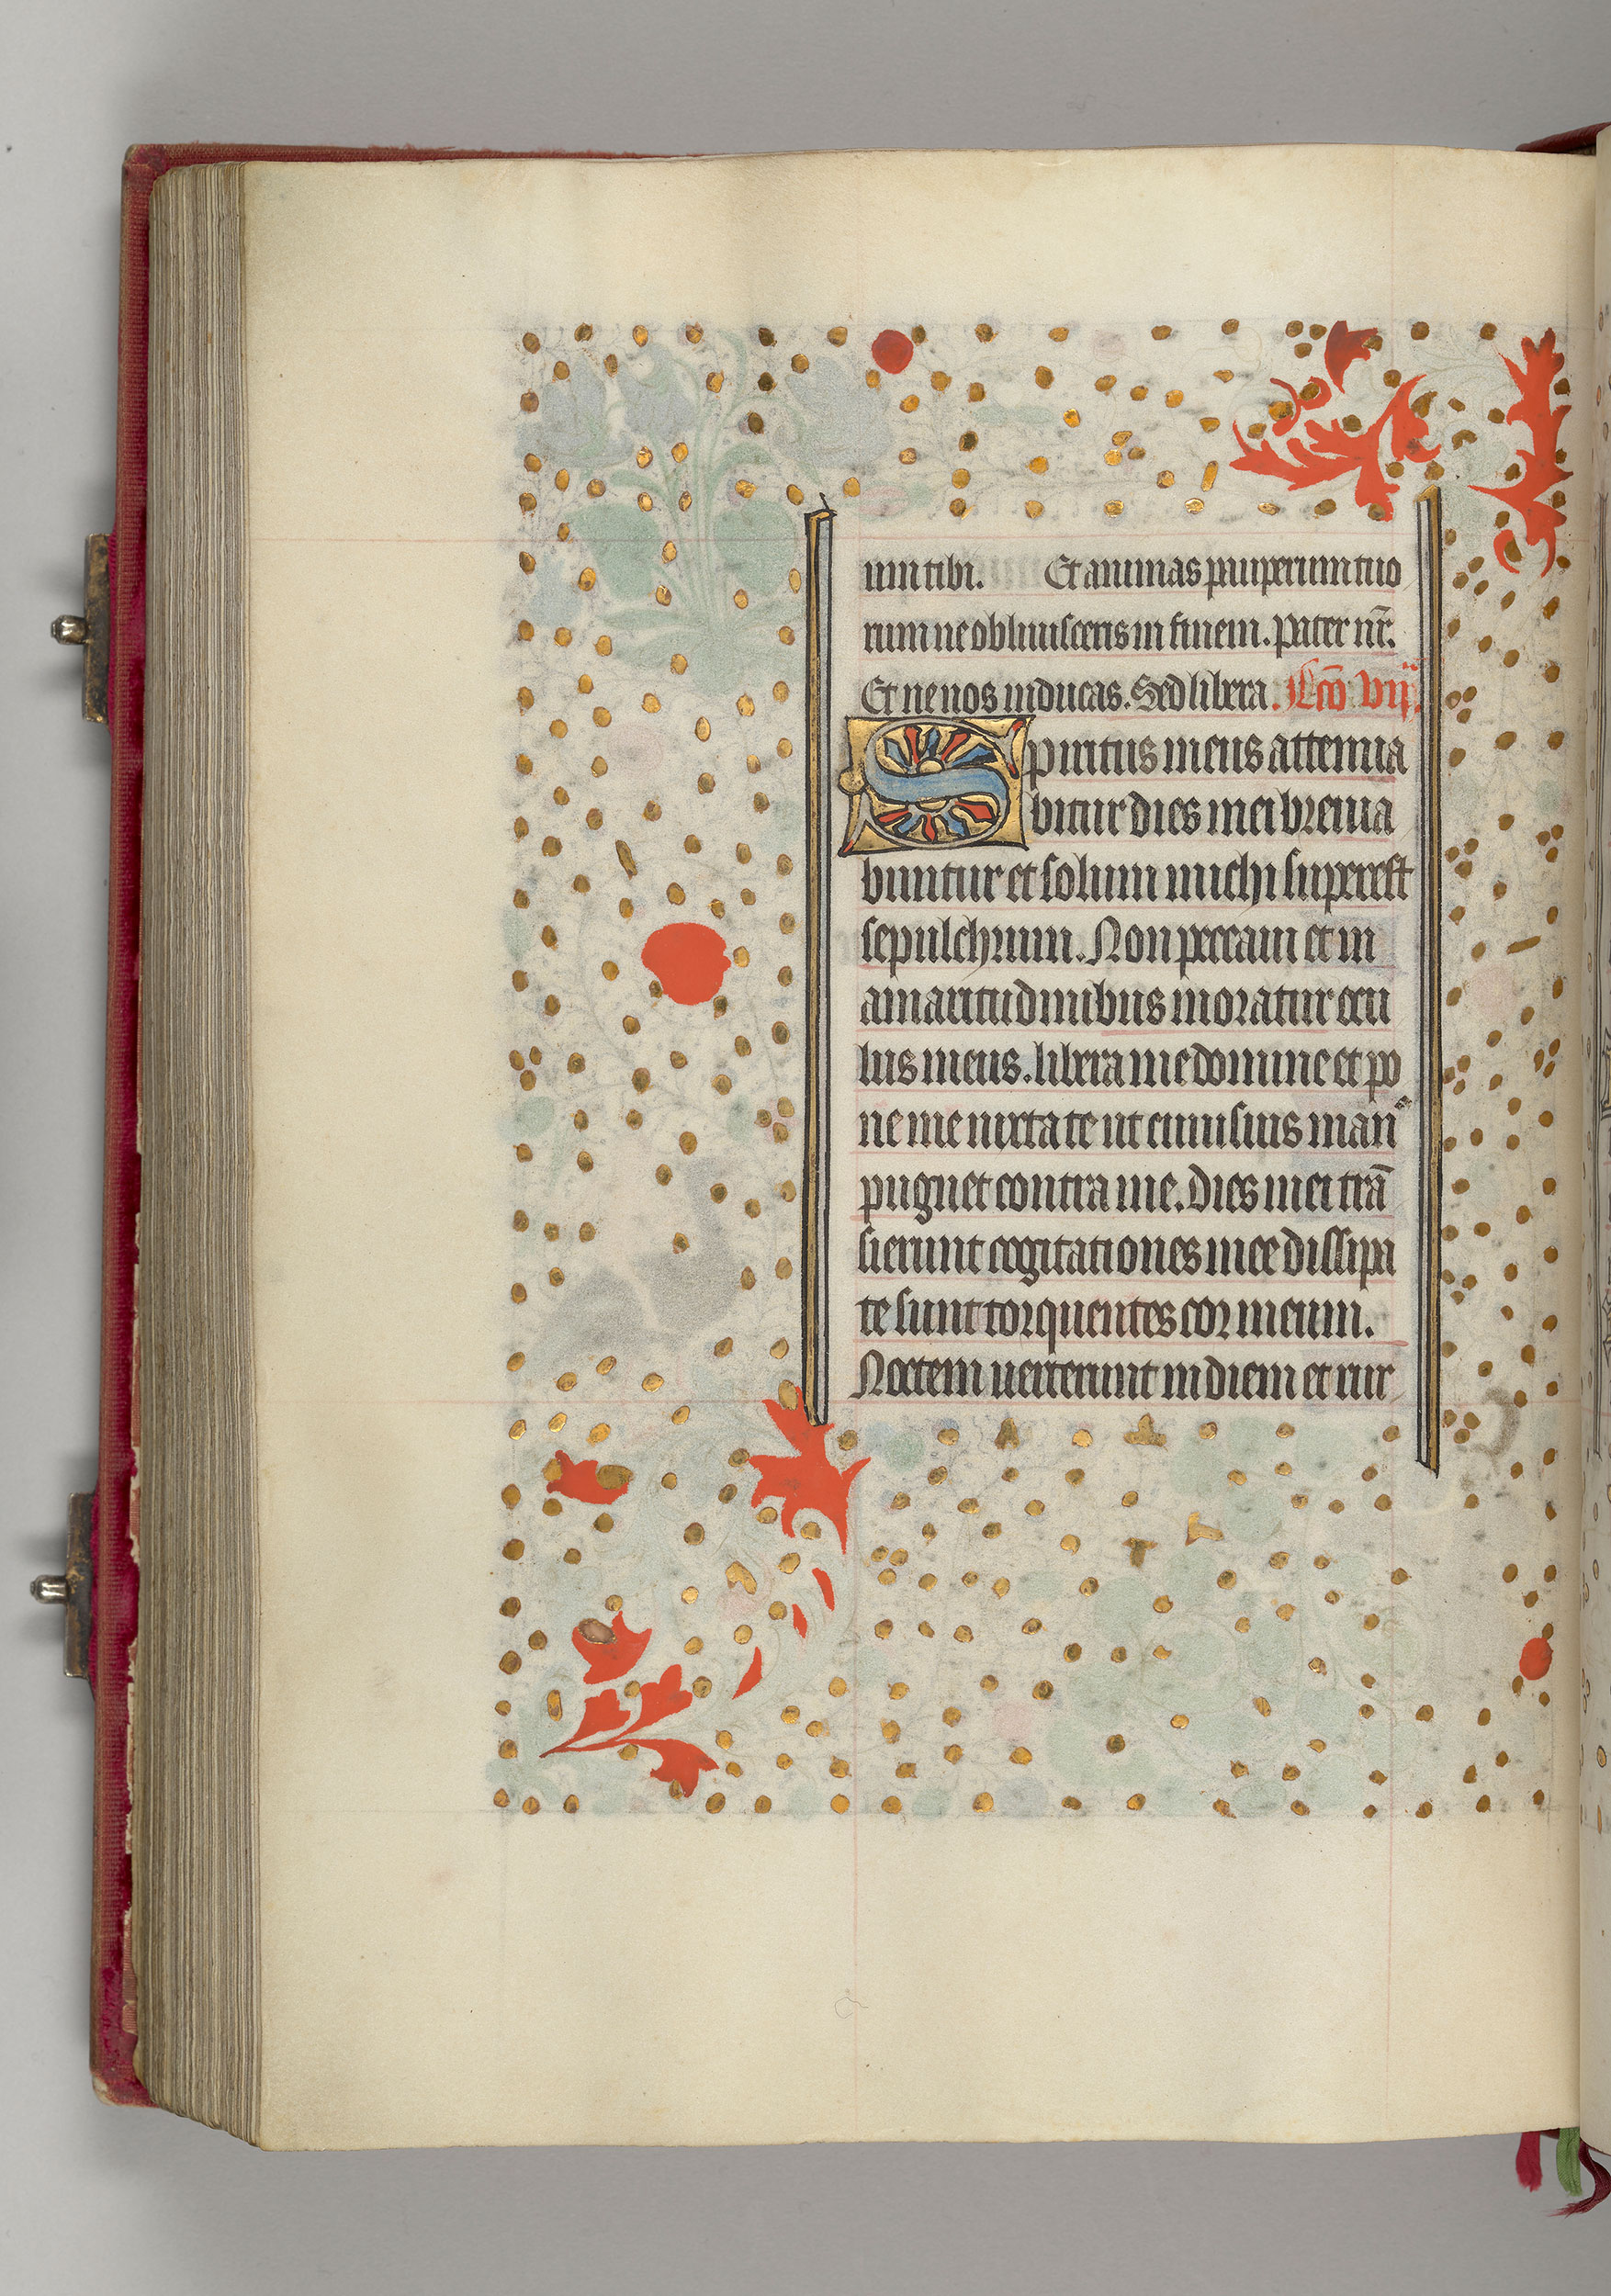 num tibi. Et animas pauperum tuo
rum ne obliuiscaris in finem. Pater nr̄.
Et ne nos inducas. Sed libera. Lc̄o vij.
Spiritus meus attenua
bitur dies mei breuia
buntur et solum michi superest
sepulchrum. Non peccaui et in
amaritudinibus moratur ocu
lus meus. libera me domine et po
ne me iuxta te ut cuiusuis man⁹
pugnet contra me. Dies mei trā
sierunt cogitationes mee dissipa
te sunt torquentes cor meum.
Noctem uerterunt in diem et rur